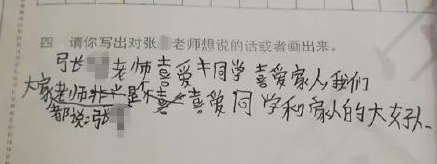 四 请你写出对张 老师想说的话或者画出来。
张 老师喜爱 同学喜爱家人,我们
大家老师 是不 喜爱同学和家人的大好人.
都说:张